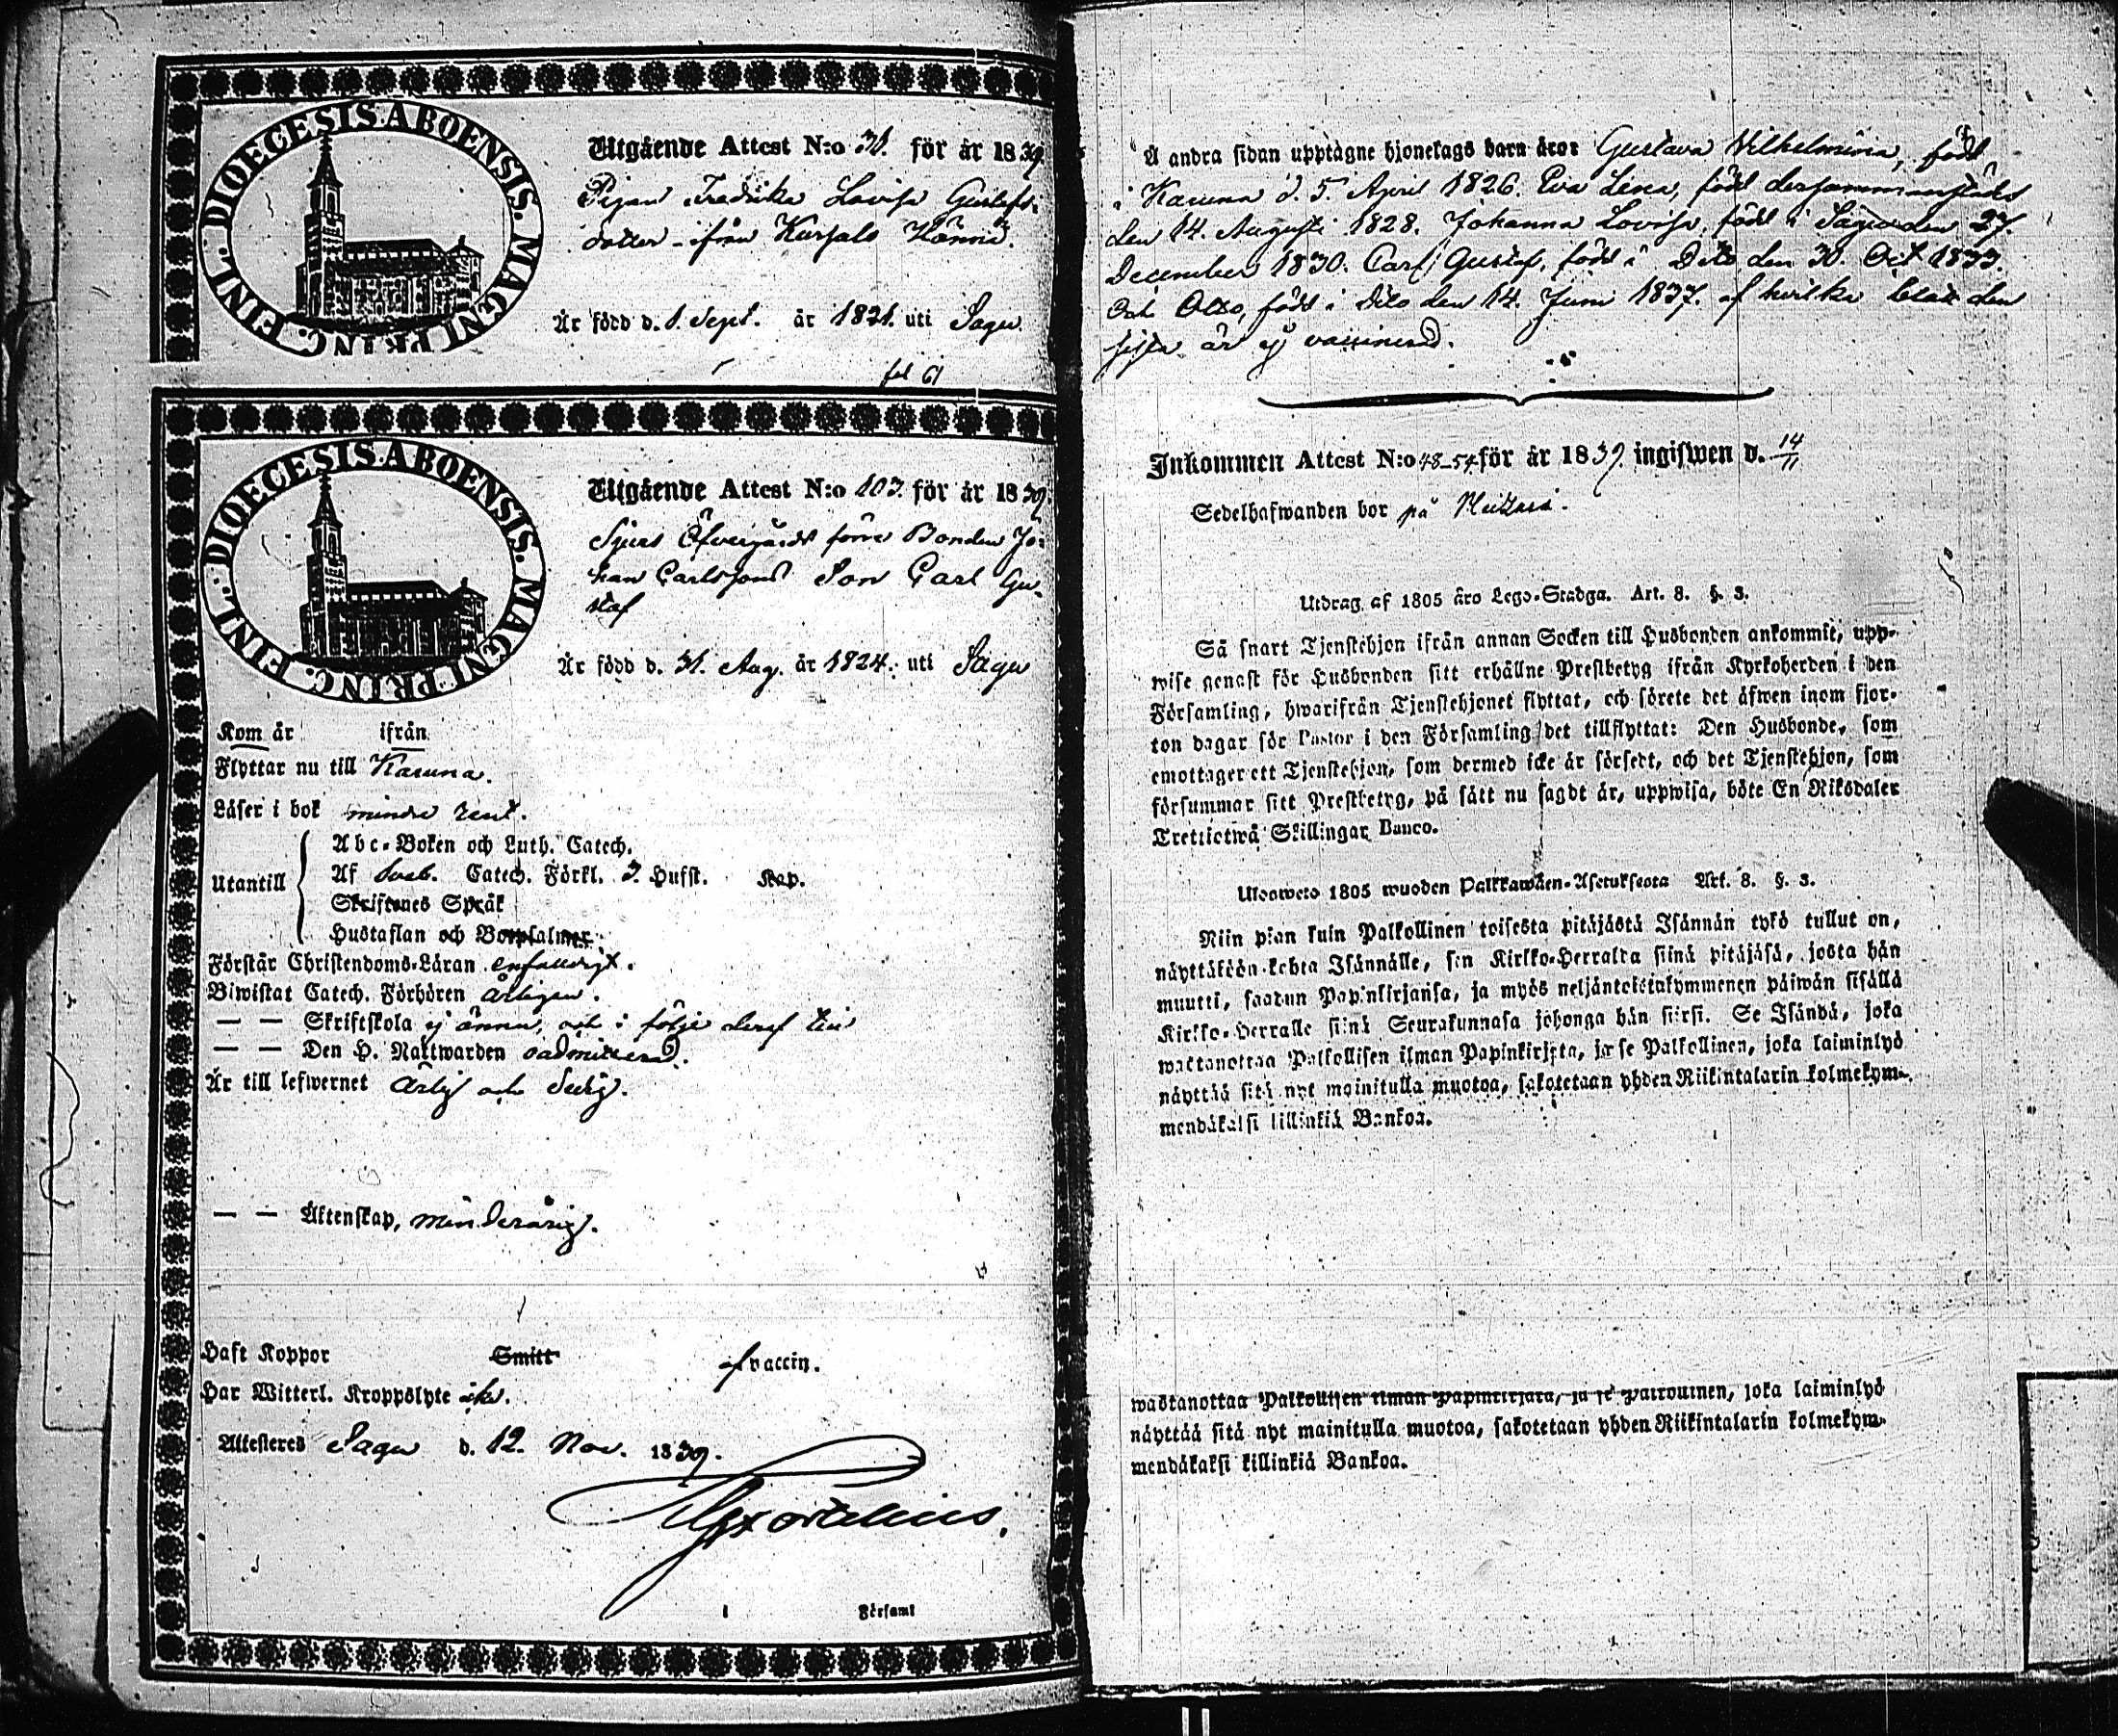 DIOECESIS ABOENSIS. MAGNI PRINC. FINL.
Utgående Attest N:o 31. för år 1839.
Pigan Fredrika Lovisa Gustafs-
dotter ifrån Kurjala Hönnä.
Är född d. 1. Sept. år 1821. uti Sagu
fol 61
DIOECESIS ABOENSIS. MAGNI PRINC. FINL.
Utgående Attest N:o 103. för år 1839.
Öfvergårds förre Bonden Jo-
han Carlssons Son Carl Gu-
staf
Är född d. 31. Aug. år 1824. uti Sagu
Kom år ifrån
Flyttar nu till Karuna.
Läser i bok mindre rent.
Utantill
Abc-Boken och Luth. Catech.
Af Sveb. Catech. Förkl. 3. Hufst. Kap.
Skriftenes Språk
Hustaflan och Botpsalmer
Förstår Christendoms-Läran enfaldigt.
Biwistat Catech. Förhören årligen.
— — Skriftskola ej ännu, och i följe deraf till
— — Den H. Nattwarden oadmitterad.
Är till lefwernet ärlig och sedig.
— — Äktenskap, minderårig.
Haft Koppor Smitt af vaccin.
Har Witterl. Kroppslyte icke.
Attesteres Sagu d. 12. Nov. 1839.
Församl
Å andra sidan upptagne hjonelags barn äro: Gustava Vilhelmina, född
i Karuna d. 5. April 1826. Eva Lena, född dersammanstädes
den 14. Augusti 1828. Johanna Lovisa, född i Sagu den 27.
December 1830. Carl Gustaf, född i Dito den 30. Oct 1833.
och Otto, född i Dito den 14. Juni 1837. af hvilka blott den
sista är ej vaccinerad.
Inkommen Attest N:o 48-54 för år 1839. ingifwen d. 14/11
Sedelhafwanden bor på
Utdrag af 1805 års Lego-Stadga. Art. 8. §. 3.
Så snart Tjenstehjon ifrån annan Socken till Husbonden ankommit, upp-
wise genast för Husbonden sitt erhållne Prestbetyg ifrån Kyrkoherden i den
Församling, hwarifrån Tjenstehjonet flyttat, och förete det äfwen inom fjor-
ton dagar för Pastor i den Församling det tillflyttat: Den Husbonde, som
emottager ett Tjenstehjon, som dermed icke är försedt, och det Tjenstehjon, som
försummar sitt Prestbetyg, på sätt nu sagdt är, uppwisa, böte En Riksdaler
Trettiotwå Skillingar Banco.
Uloswero 1805 wuoden Palkkawäen-Asetuksesta Art. 8. §. 3.
Niin pian kuin Palkollinen toisesta pitäjästä Isännän tykö tullut on,
näyttäköön kohta Isännälle, sen Kirkko-Herralta siinä pitäjäsä, josta hän
muutti, saadun Papinkirjansa, ja myös neljäntoistakymmenen päiwän sisällä
Kirkko-Herralle siinä Seurakunnasa johonga hän siirsi. Se Isändä, joka
wastanottaa Palkollisen ilman Papinkirjata, ja se Palkollinen, joka laiminlyö
näyttää sitä nyt mainitulla muotoa, sakotetaan yhden Riikintalarin kolmekym-
mendäkaksi killinkiä Bankoa.
wastanottaa Palkollisen ilman Papinkirjata, ja se Palkollinen, joka laiminlyö
näyttää sitä nyt mainitulla muotoa, sakotetaan yhden Riikintalarin kolmekym-
mendäkaksi killinkiä Bankoa.